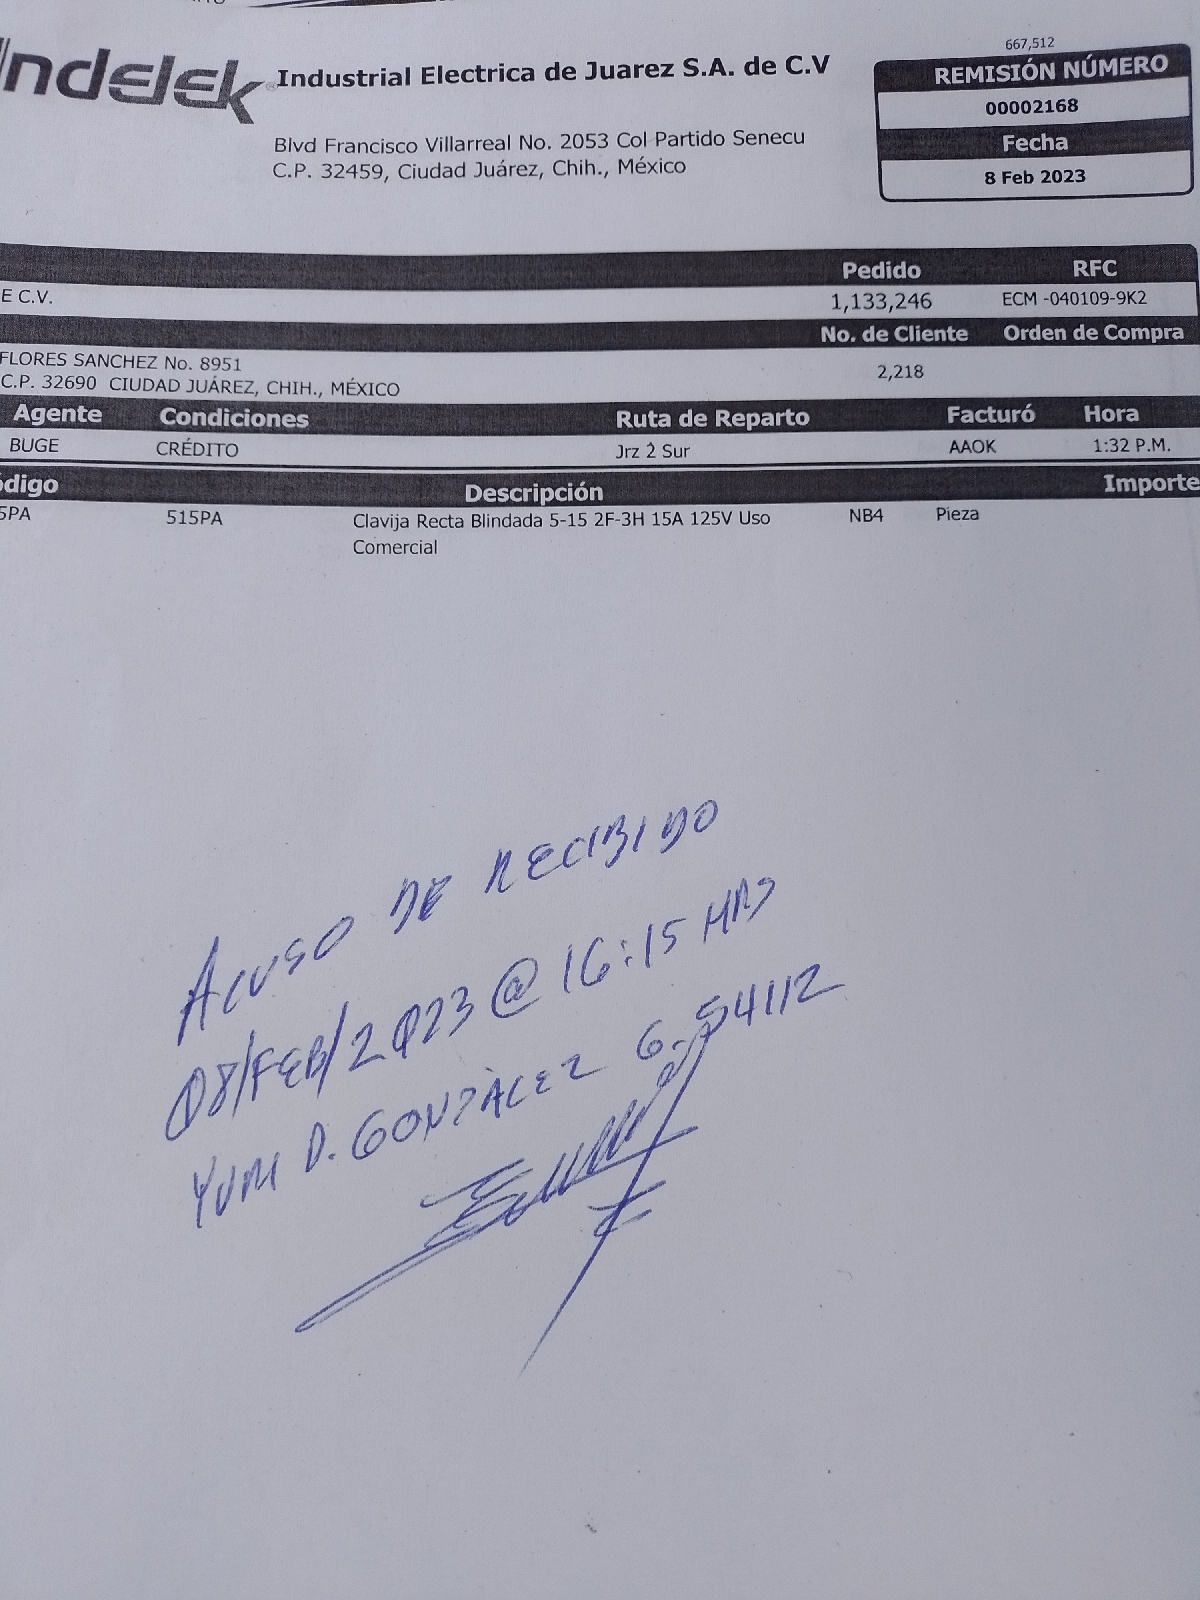 Indelek
Industrial Electrica de Juarez S.A. de C.V
Blvd Francisco Villarreal No. 2053 Col Partido Senecu
C.P. 32459, Ciudad Juárez, Chih., México
667,512
REMISIÓN NÚMERO
00002168
Fecha
8 Feb 2023
Pedido RFC
E C.V. 1,133,246 ECM -040109-9K2
No. de Cliente Orden de Compra
FLORES SANCHEZ No. 8951
C.P. 32690 CIUDAD JUÁREZ, CHIH., MÉXICO
2,218
Agente Condiciones Ruta de Reparto Facturó Hora
BUGE CRÉDITO Jrz 2 Sur AAOK 1:32 P.M.
ódigo Descripción Importe
5PA 515PA Clavija Recta Blindada 5-15 2F-3H 15A 125V Uso NB4 Pieza
Comercial
ACUSO DE RECIBIDO
08/FEB/2023 @ 16:15 HRS
YURI D. GONZÁLEZ G. 54112